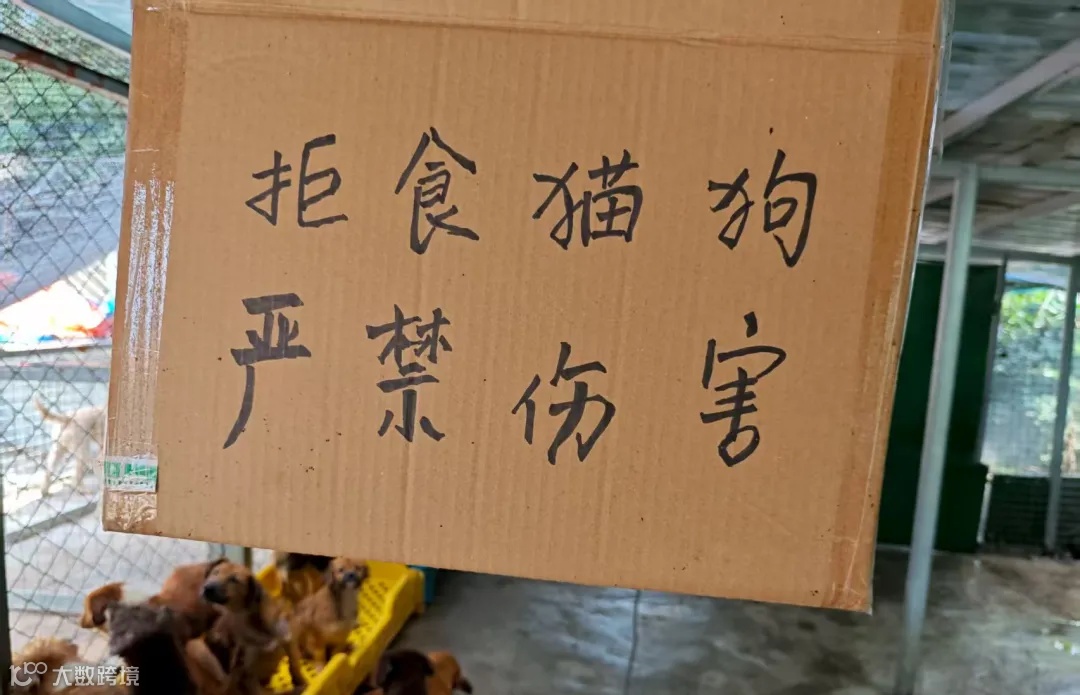 拒食猫狗
严禁伤害
大数跨境